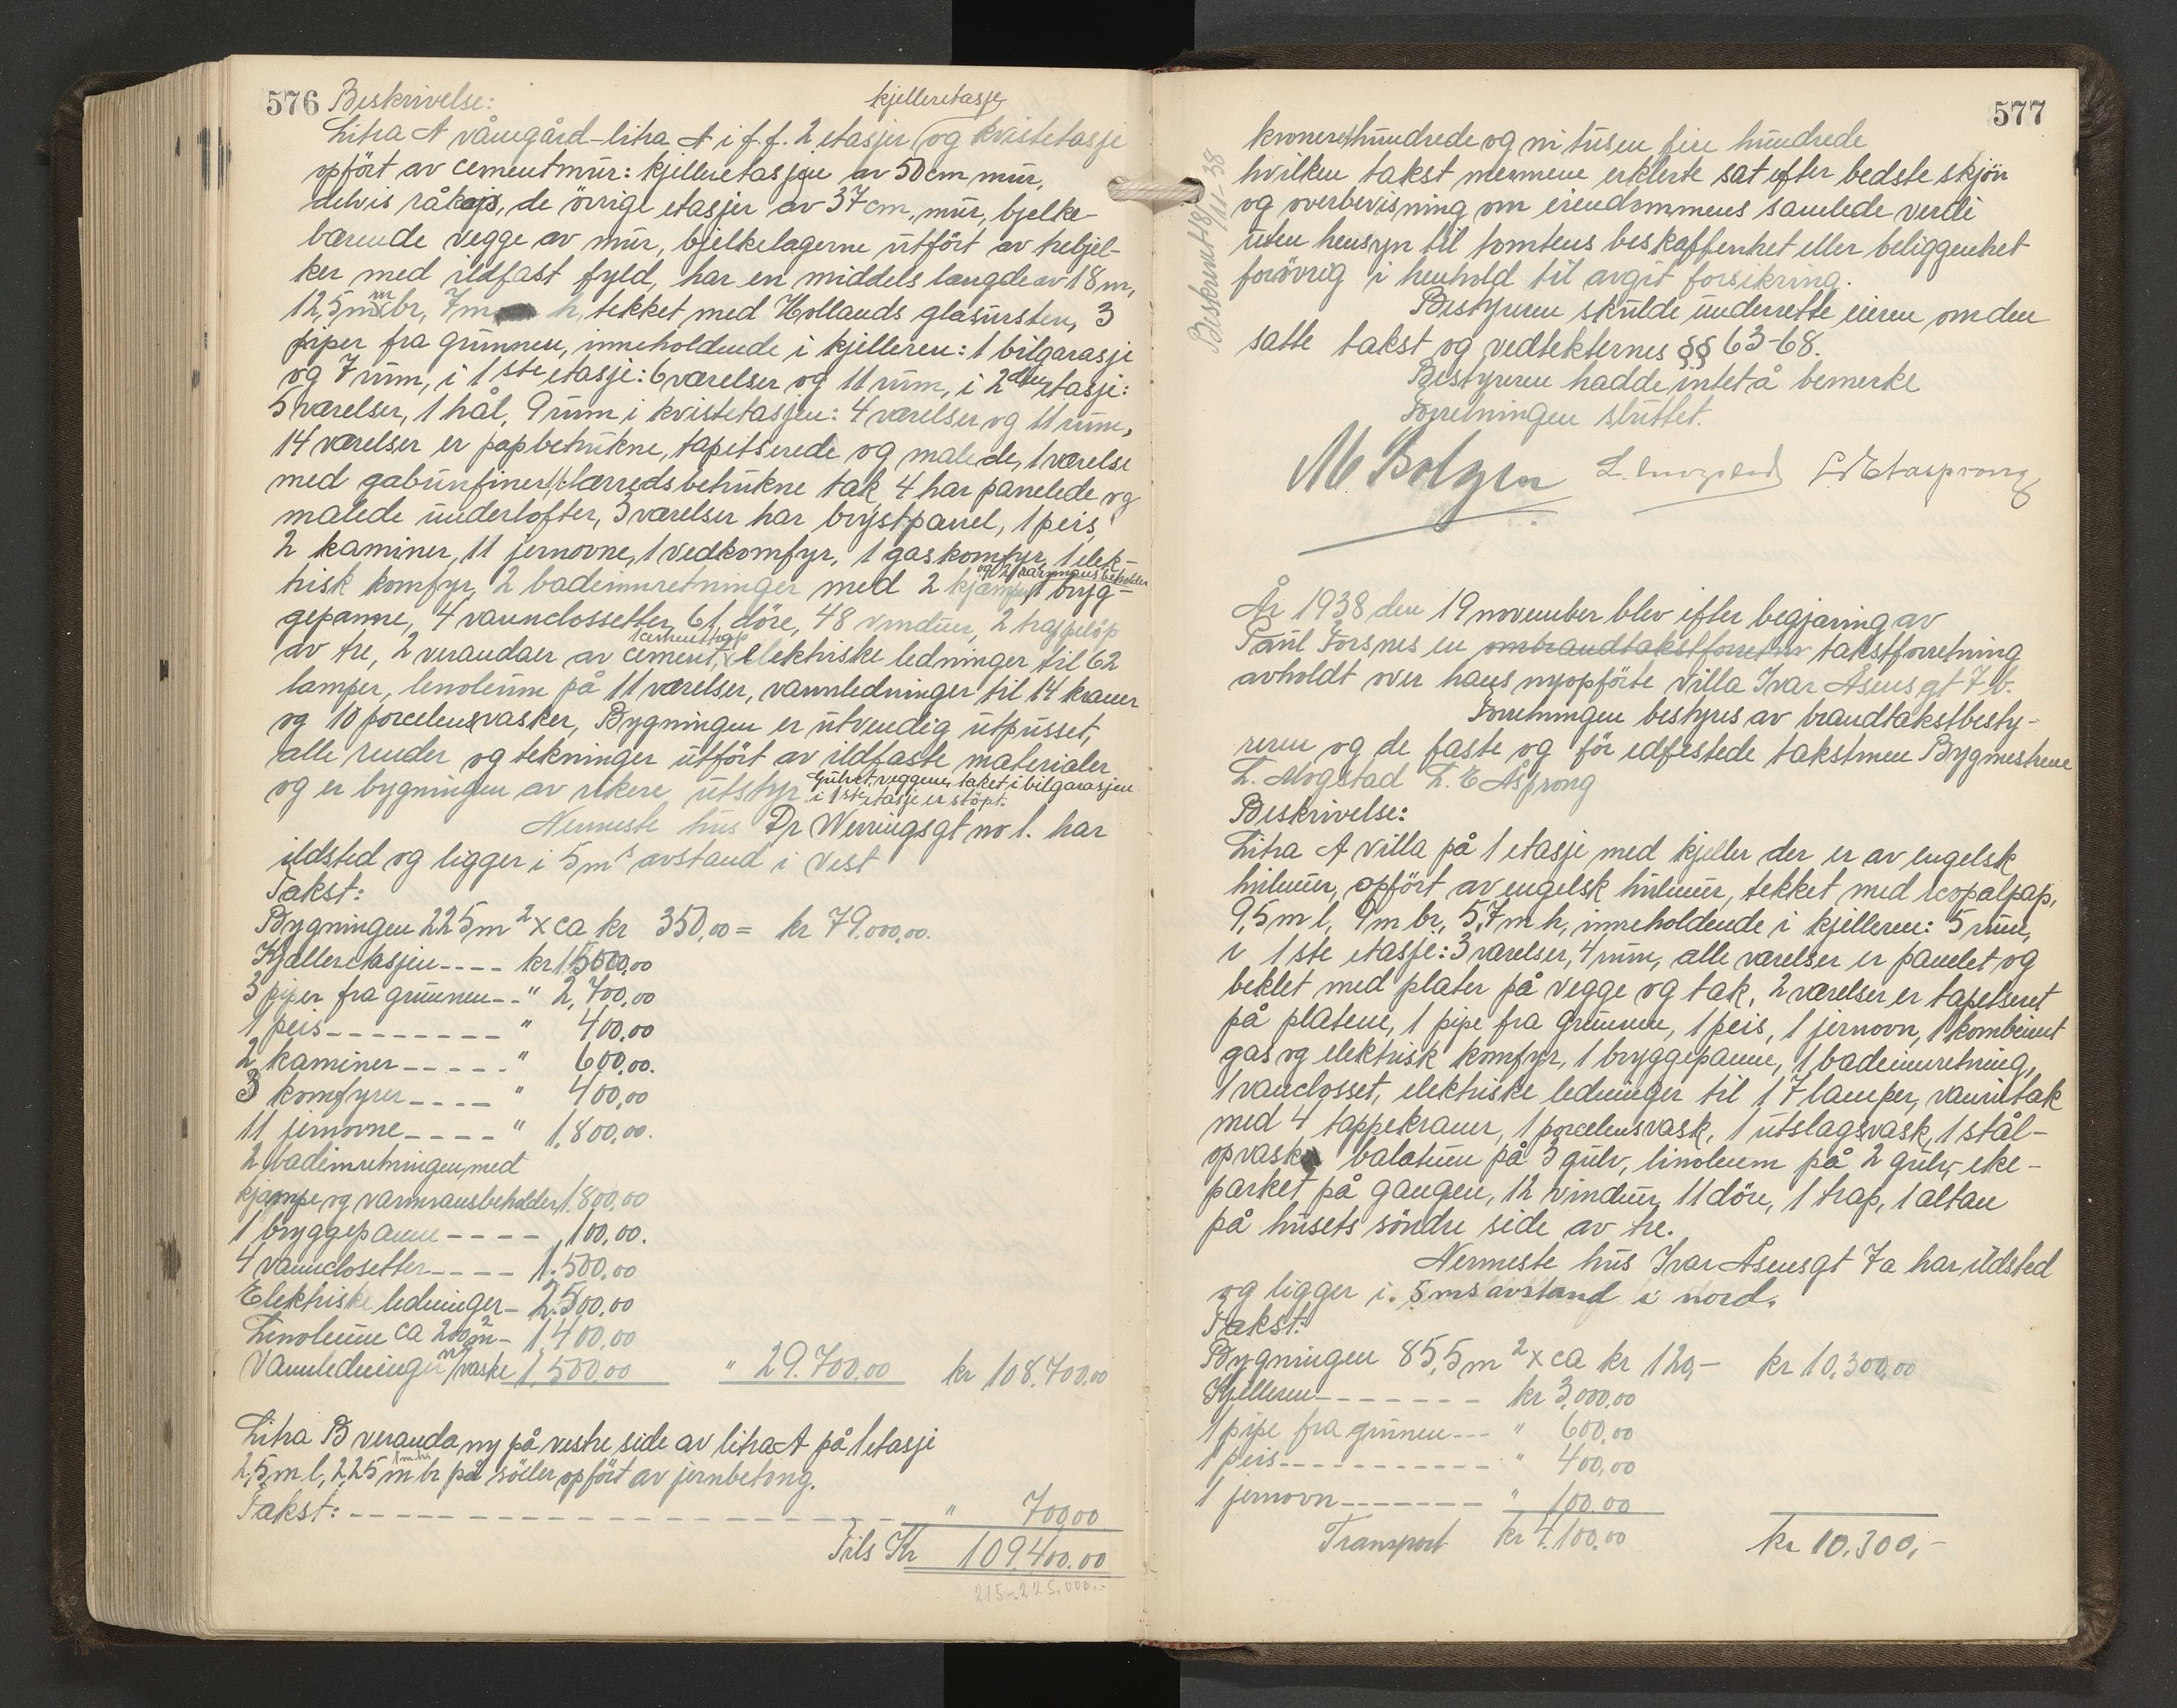 576 Beskrivelse:
kjelleretasje
Litra A våningård-litra A i f.f. 2 etasjer (og kvistetasje
opfört av cementmur: kjelleretasjen av 50 cm mur,
delvis råkop, de övrige etasjer av 37 cm, mur, bjelke-
bærende vegge av mur, bjelkelagerne utfört av trebjel-
ker med ildfast fyld, har en middels længde av 18 m,
12,5 m br, 7 m h, tekket med Hollands glasursten, 3
piper fra grunnen, inneholdende i kjelleren: 1 bilgarasje
og 7 rum, i 1ste etasje: 6 værelser og 11 rum, i 2den etasje:
5 værelser, 1 hål, 9 rum i kvistetasjen: 4 værelser og 11 rum,
14 værelser er papbetrukne, tapetserede og malede, 1 værelse
med gabunfiner, 11 lærredsbetrukne tak, 4 har panelede og
malede underlofter, 3 værelser har brystpanel, 1 peis,
2 kaminer, 11 jernovne, 1 vedkomfyr, 1 gaskomfyr, 1 elek-
og 2 varmvansbeholder
trisk komfyr, 2 badeinnretninger med 2 kjæmpe, 1 bryg-
gepanne, 4 vannclossetter, 61 döre, 48 vinduer, 2 trappelöp
1 cementtrap
av tre, 2 verandaer av cement, x elektriske ledninger til 62
lamper, lenoleum på 11 værelser, vannledninger til 14 kraner
og 10 porcelensvasker, Bygningen er utvendig utpusset,
alle render og tekninger utfört av ildfaste materialer
og er bygningen av rikere utstyr Gulvet, veggene, taket i bilgarasjen
i 1ste etasje er stöpt.
Nermeste hus Dr Werringsgt no 1. har
ildsted og ligger i 5 ms avstand i vest
Takst:
Bygningen 225 m2 x ca kr 350,00 = kr 79.000,00.
Kjelleretasjen---- kr 15000,00
3 piper fra grunnen-- " 2,700,00
1 peis-------- " 400,00
2 kaminer----- " 600,00.
3 komfyrer---- " 400,00
11 jernovne---- " 1,800,00.
2 badeinretningen med
kjæmpe og varmvansbeholder 1.800,00
1 bryggepanne---- 100,00.
4 vannclosetter---- 1.500,00
Elektriske ledninger- 2.500,00
Linoleum ca 200 m2- 1,400,00
Vannledninger m/vaske 1.500,00 " 29.700,00 kr 108.700,00
Litra B veranda ny på vestre side av litra A på 1 etasje
1 m hö
2,5 m l, 2,25 m br på söiler opfört av jernbetong.
Takst:-------------------- " 700,00
Tils Kr 109,400.00
215-225.000.-
577
Beskrevet 18/11-38
kroner ethundrede og ni tusen fire hundrede
hvilken takst mennene erklerte sat efter bedste skjön
og overbevisning om eiendommens samlede verdi
uten hensyn til tomtens beskaffenhet eller beliggenhet
forövrig i henhold til avgit forsikring.
Bestyreren skulde underrette eieren om den
satte takst og vedtekternes §§ 63-68.
Bestyreren hadde intet å bemerke
Forretningen sluttet.
M Bolgen L. Mogstad L E Aasprong
År 1938 den 19 november blev efter begjæring av
Paul Forsnes en ombrandtakstforretn takstforretning
avholdt over hans nyopförte villa Ivar Åsens gt 7 b.
Forretningen bestyres av brandtakstbesty-
reren og de faste og för edfestede takstmen Bygmestrene
L. Mogstad L. E Åsprong
Beskrivelse:
Litra A villa på 1 etasje med kjeller der er av engelsk
hulmur, opfört av engelsk hulmur, tekket med icopalpap,
9,5 m l, 9 m br, 5,7 m h, inneholdende i kjelleren: 5 rum,
i 1ste etasje: 3 værelser, 4 rum, alle værelser er panelet og
beklet med plater på vegge og tak, 2 værelser er tapetseret
på platene, 1 pipe fra grunnen, 1 peis, 1 jernovn, 1 kombinert
gas og elektrisk komfyr, 1 bryggepanne, 1 badeinnretning,
1 vanclosset, elektriske ledninger til 17 lamper, vaninltak
med 4 tappekraner, 1 porcelensvask, 1 utslagsvask, 1 stål-
opvask, balatum på 3 gulv, linoleum på 2 gulv, eke-
parket på gangen, 12 vinduer, 11 döre, 1 trap, 1 altan
på husets söndre side av tre.
Nermeste hus Ivar Åsensgt 7a har ildsted
og ligger i 5 ms avstand i nord.
Takst:
Bygningen 85,5 m2 x ca kr 120,- kr 10,300,00
Kjelleren------- kr 3,000,00
1 pipe fra grunnen--- " 600,00
1 peis----------- " 400,00
1 jernovn------- " 100,00
Transport kr 4.100,00 kr 10.300,-